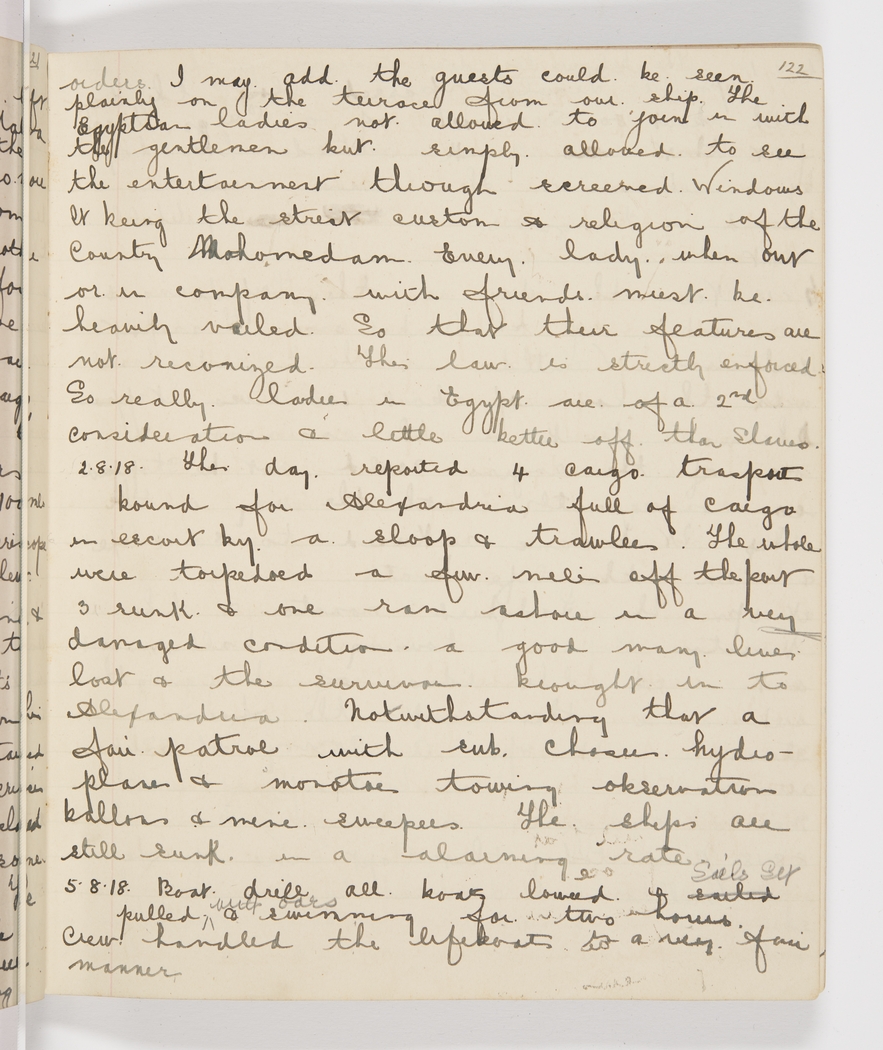 122
orders. I may. add. the guests could. be. seen.
plainly on the terrace from our. ship. The
Egyptian ladies not. allowed. to join in with
the gentlemen but. simply. allowed. to see
the entertainment though screened. Windows
It being the strict custom & religion of the
Country Mohomedam. Every. lady., when out
or. in company. with friends. must. be.
heavily veiled. So that their features are
not. reconized. This law. is strictly enforced.
So really. ladies in Egypt. are. of a. 2nd
consideration & little better off. than Slaves.
2.8.18. This day. reported 4 cargo. trasport
bound for Alexandria full of cargo
in escort by. a. sloop & trawlers. The whole
were torpedoed a few. miles off the port
3 sunk. & one ran ashore in a very
damaged condition. a good many. lives
lost & the survivors. brought. in to
Alexandria. Notwithstanding that a
fair. patrol with sub. chaser. hydro-
planes & monotors towing observation
ballons & mine. sweepers. The. ships are
still sunk. in a alarming rate.
Sails Set
5.8.18. Boat. drill. all. boats lowered. & sailed
with oars
pulled, & swimming for. two hours.
Crew. handled the lifeboats to a very. fair
manner